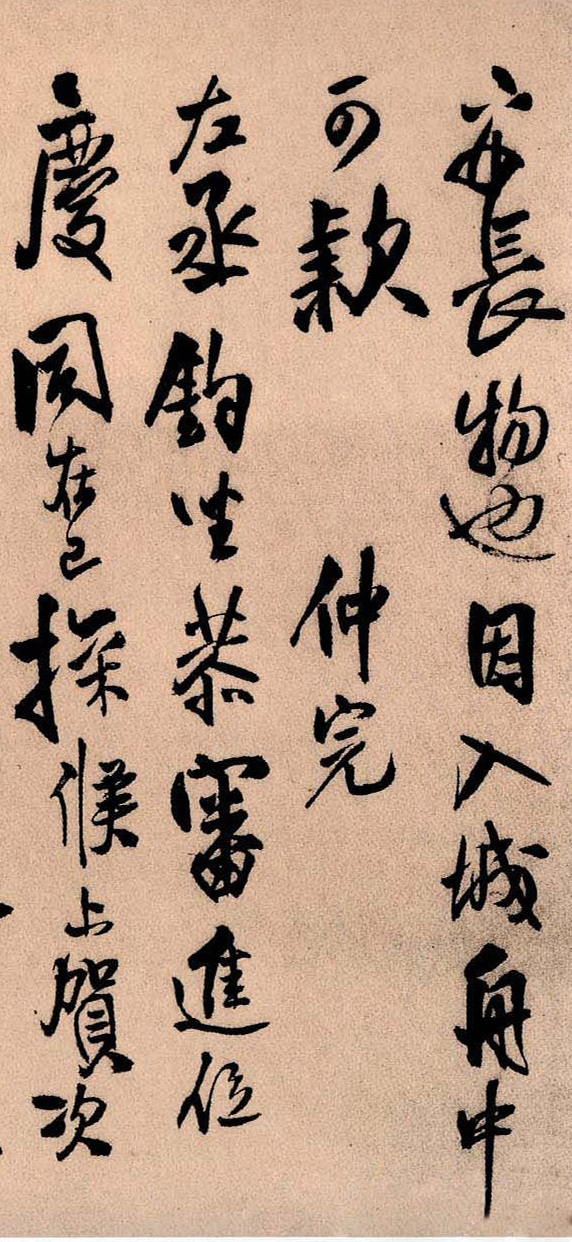 長物也因入城舟中
可款 仲完
左丞鈞坐恭審進位
慶同在己探候上賀次